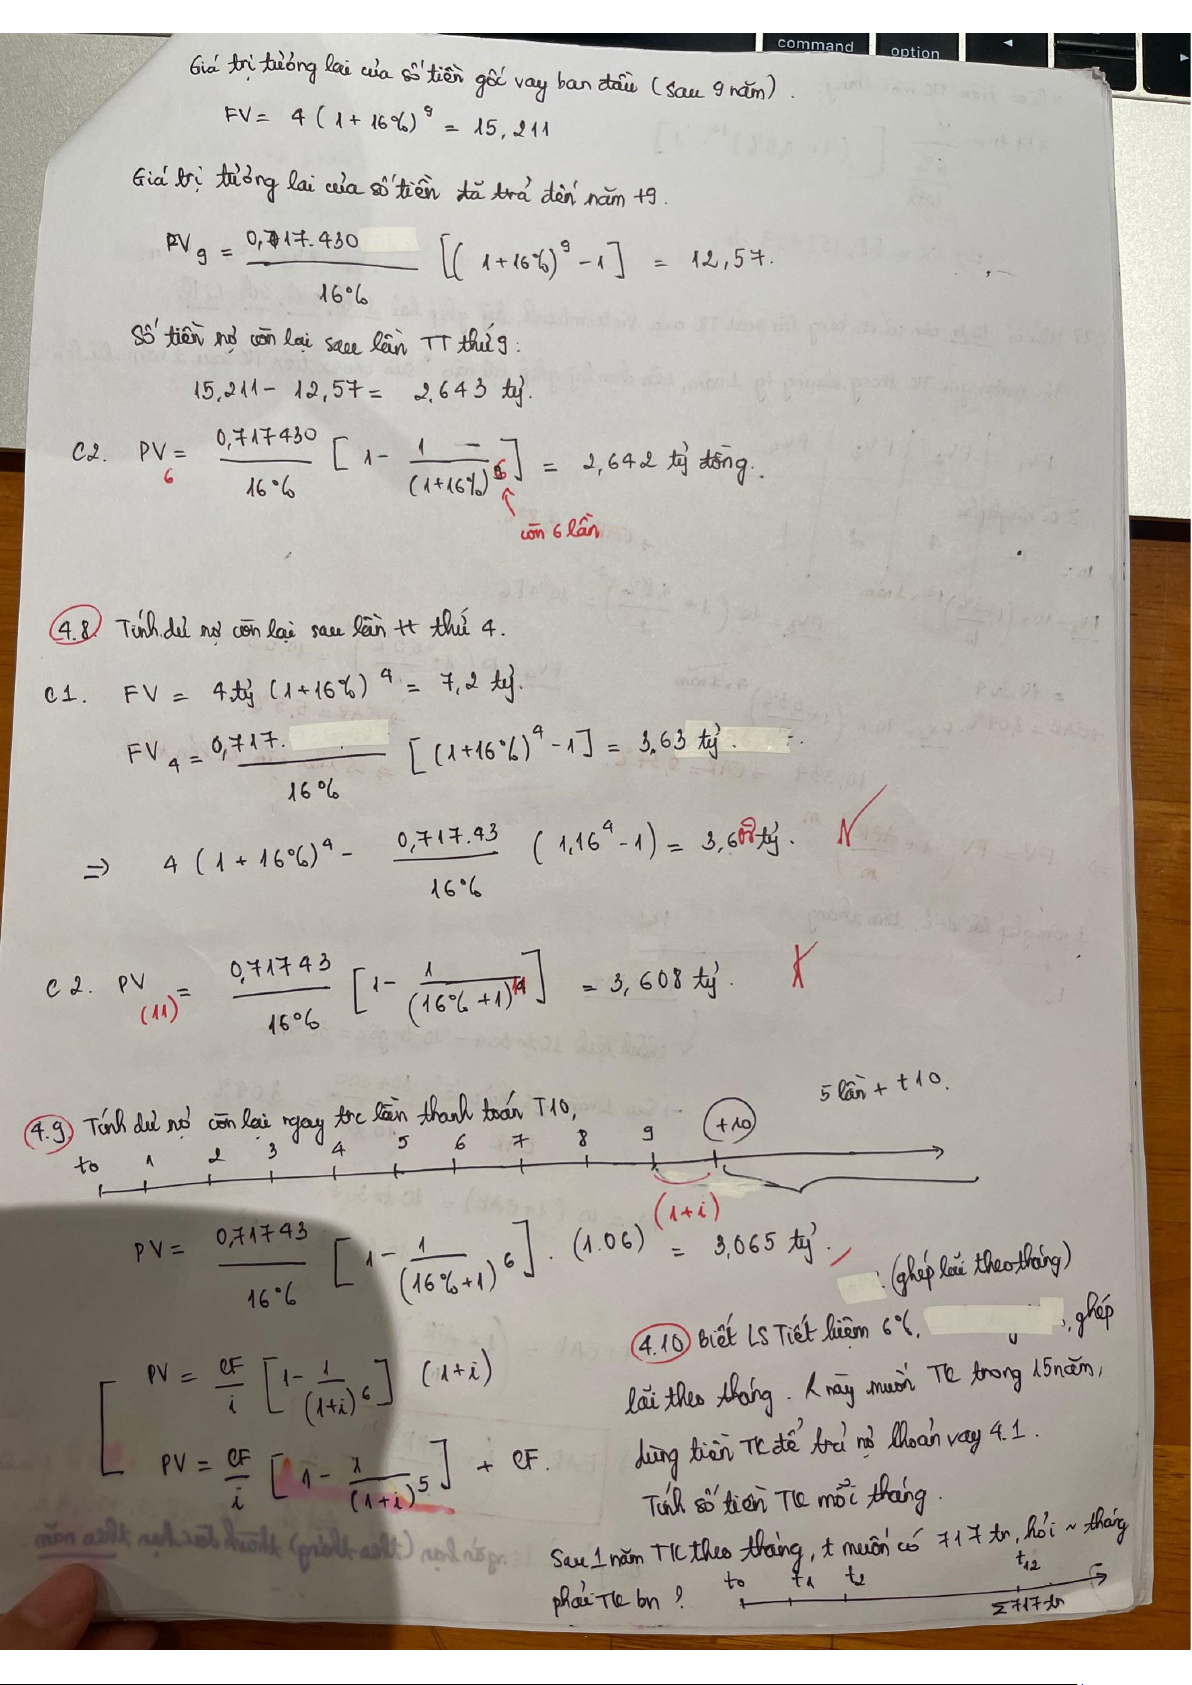 command
option
Giá trị tương lai của số tiền gốc vay ban đầu (sau 9 năm).
FV = 4 (1 + 16%)^9 = 15,211
Giá trị tương lai của số tiền đã trả đến năm t9.
PV9 = 0,717.430 / 16% [(1+16%)^9 - 1] = 12,57.
Số tiền nợ còn lại sau lần TT thứ 9:
15,211 - 12,57 = 2,643 tỷ.
C2. PV6 = 0,717430 / 16% [1 - 1/(1+16%)^6] = 2,642 tỷ đồng.
còn 6 lần
4.8. Tính dư nợ còn lại sau lần tt thứ 4.
C1. FV = 4 tỷ (1+16%)^4 = 7,2 tỷ.
FV4 = 0,717. / 16% [(1+16%)^4 - 1] = 3,63 tỷ.
=> 4 (1 + 16%)^4 - 0,717.43 / 16% (1,16^4 - 1) = 3,608 tỷ.
C2. PV(11) = 0,71743 / 16% [1 - 1/(16%+1)^11] = 3,608 tỷ.
5 lần + t10.
4.9 Tính dư nợ còn lại ngay trc lần thanh toán T10,
t0 1 2 3 4 5 6 7 8 9 t10
(1+i)
PV = 0,71743 / 16% [1 - 1/(16%+1)^6] . (1.06) = 3,065 tỷ.
(ghép lãi theo tháng)
PV = CF/i [1 - 1/(1+i)^6] (1+i)
PV = CF/i [1 - 1/(1+i)^5] + CF.
4.10 Biết LS Tiết kiệm 6%, , ghép
lãi theo tháng. K này muốn TK trong 15 năm,
dùng tiền TK để trả nợ khoản vay 4.1.
Tính số tiền TK mỗi tháng.
Sau 1 năm TK theo tháng, t muốn có 717 tr, hỏi ~ tháng
phải TK bn ?
t0 t1 t2 t12
Σ717tr